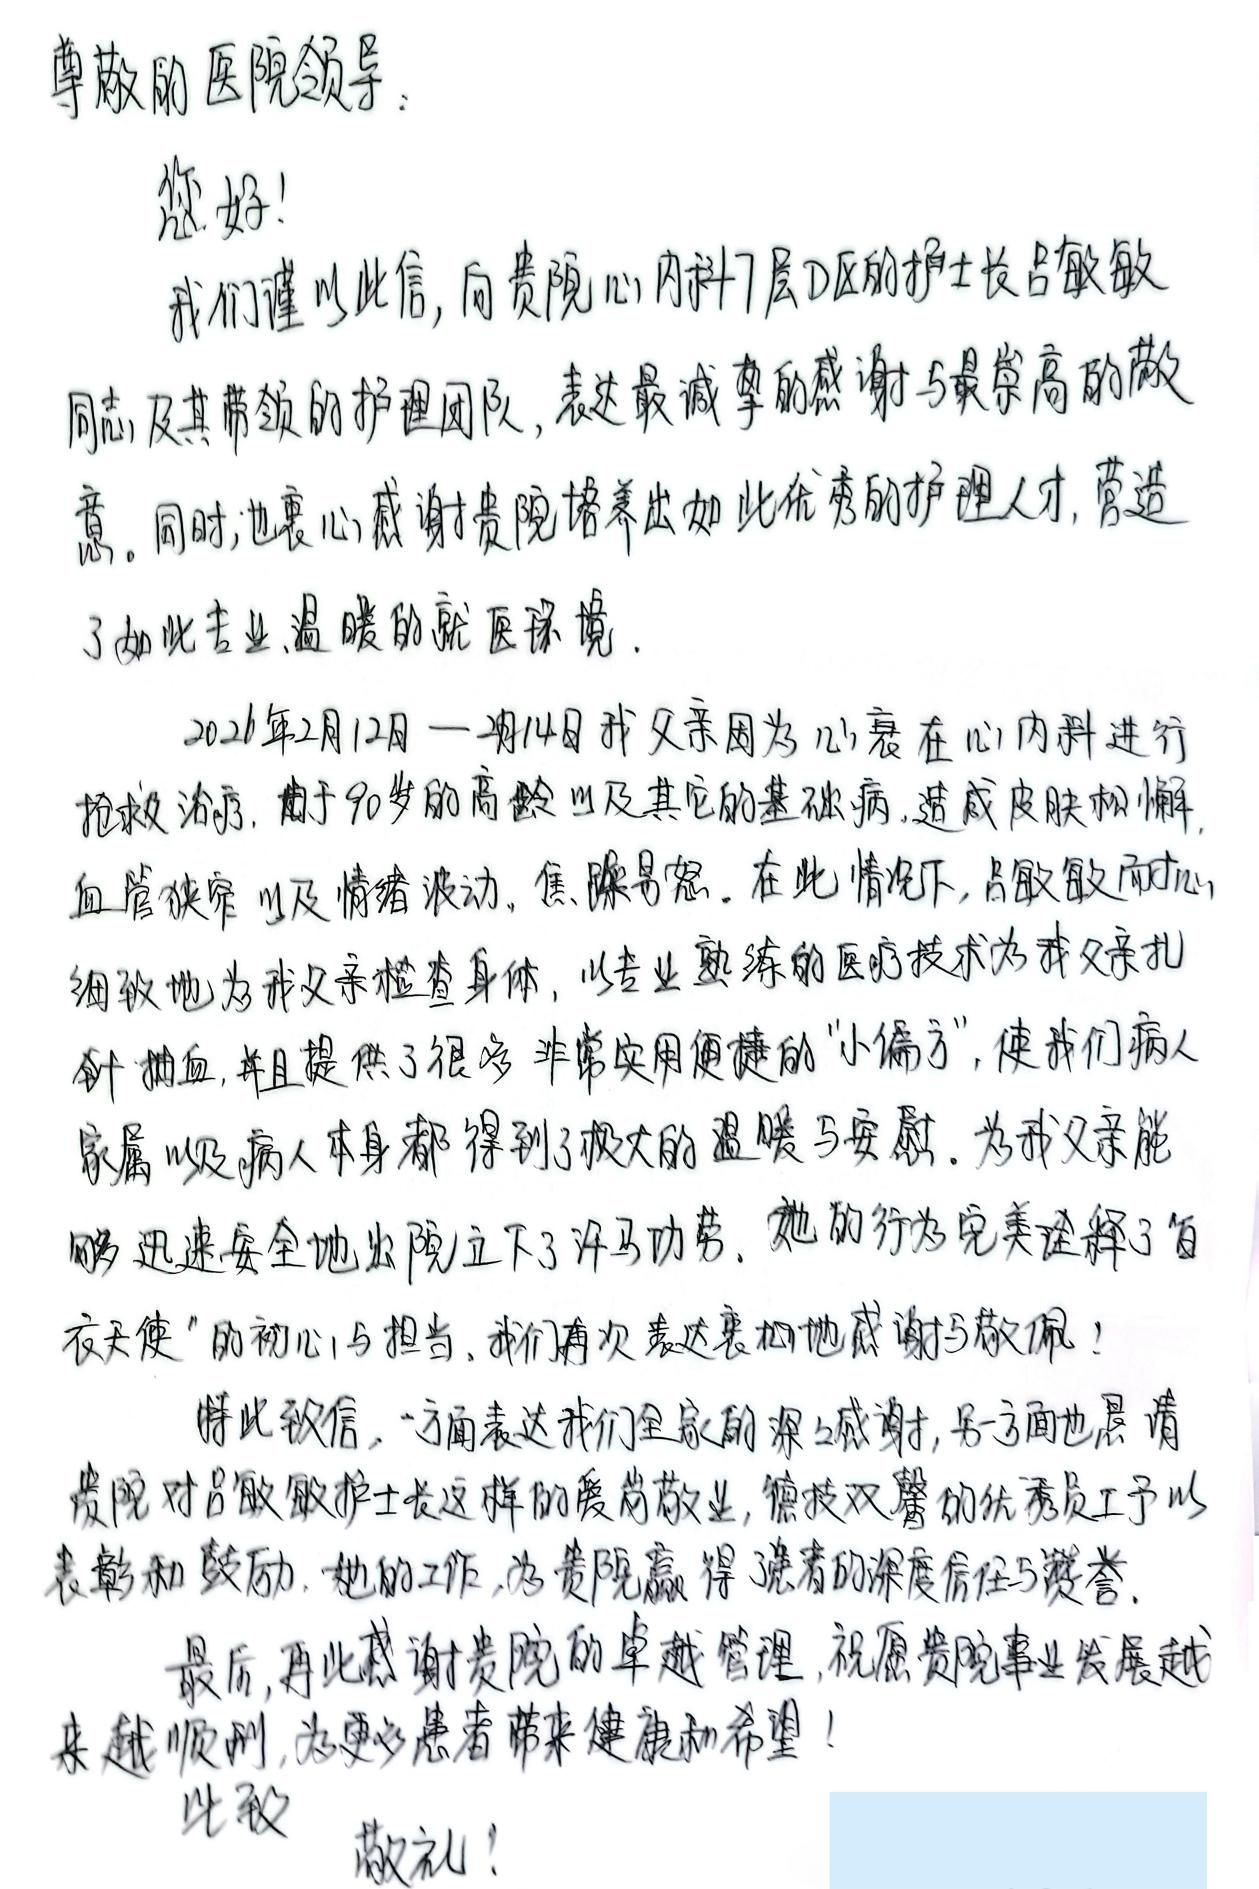 尊敬的医院领导：
您好！
我们谨以此信，向贵院心内科7层D区的护士长吕敏敏
同志及其带领的护理团队，表达最诚挚的感谢与最崇高的敬
意。同时，也衷心感谢贵院培养出如此优秀的护理人才，营造
了如此专业、温暖的就医环境.
2026年2月12日—2月14日我父亲因为心衰在心内科进行
抢救治疗.由于90岁的高龄以及其它的基础病，造成皮肤松懈，
血管狭窄以及情绪波动、焦躁易怒。在此情况下，吕敏敏耐心
细致地为我父亲检查身体，以专业熟练的医疗技术为我父亲扎
针抽血，并且提供了很多非常实用便捷的“小偏方”，使我们病人
家属以及病人本身都得到了极大的温暖与安慰。为我父亲能
够迅速安全地出院立下了汗马功劳。她的行为完美诠释了白
衣天使”的初心与担当。我们再次表达衷心地感谢与敬佩！
特此致信，一方面表达我们全家的深深感谢，另一方面也恳请
贵院对吕敏敏护士长这样的爱岗敬业，德技双馨的优秀员工予以
表彰和鼓励.她的工作，为贵院赢得了患者的深度信任与赞誉.
最后，再此感谢贵院的卓越管理，祝愿贵院事业发展越
来越顺利，为更多患者带来健康和希望！
此致
敬礼！